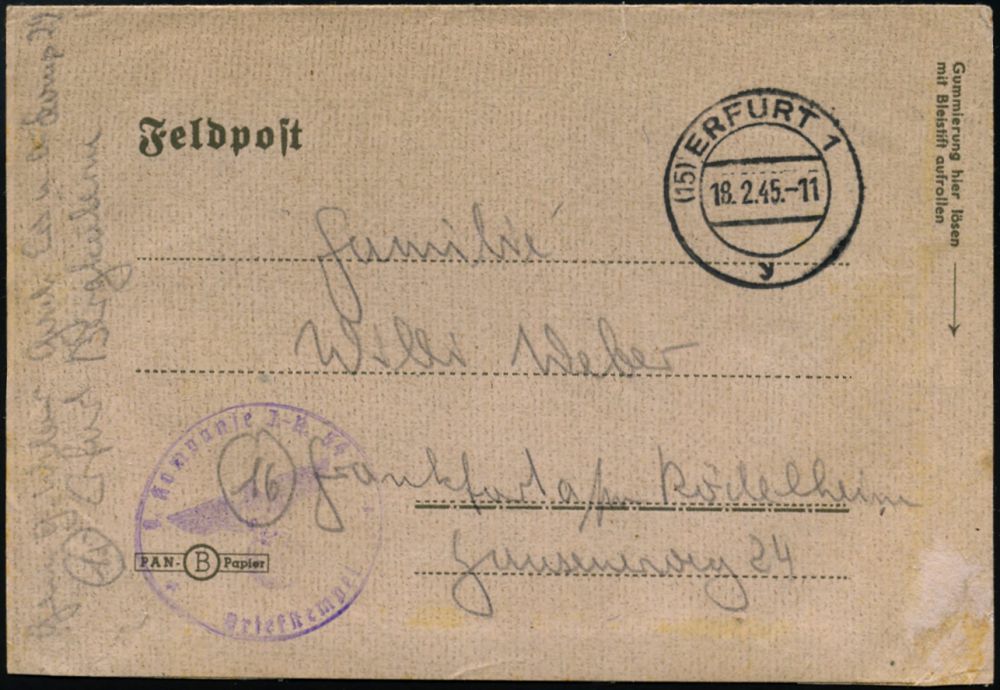 Feldpost
(15) ERFURT 1
18. 2.45.-11
y
Familie
Willi Weber
(16) Frankfurt a/m Rödelheim
Hausenerweg 24
Kompanie J.-R.
Briefstempel
PAN- B Papier
Gummierung hier lösen
mit Bleistift aufrollen
Erfurt